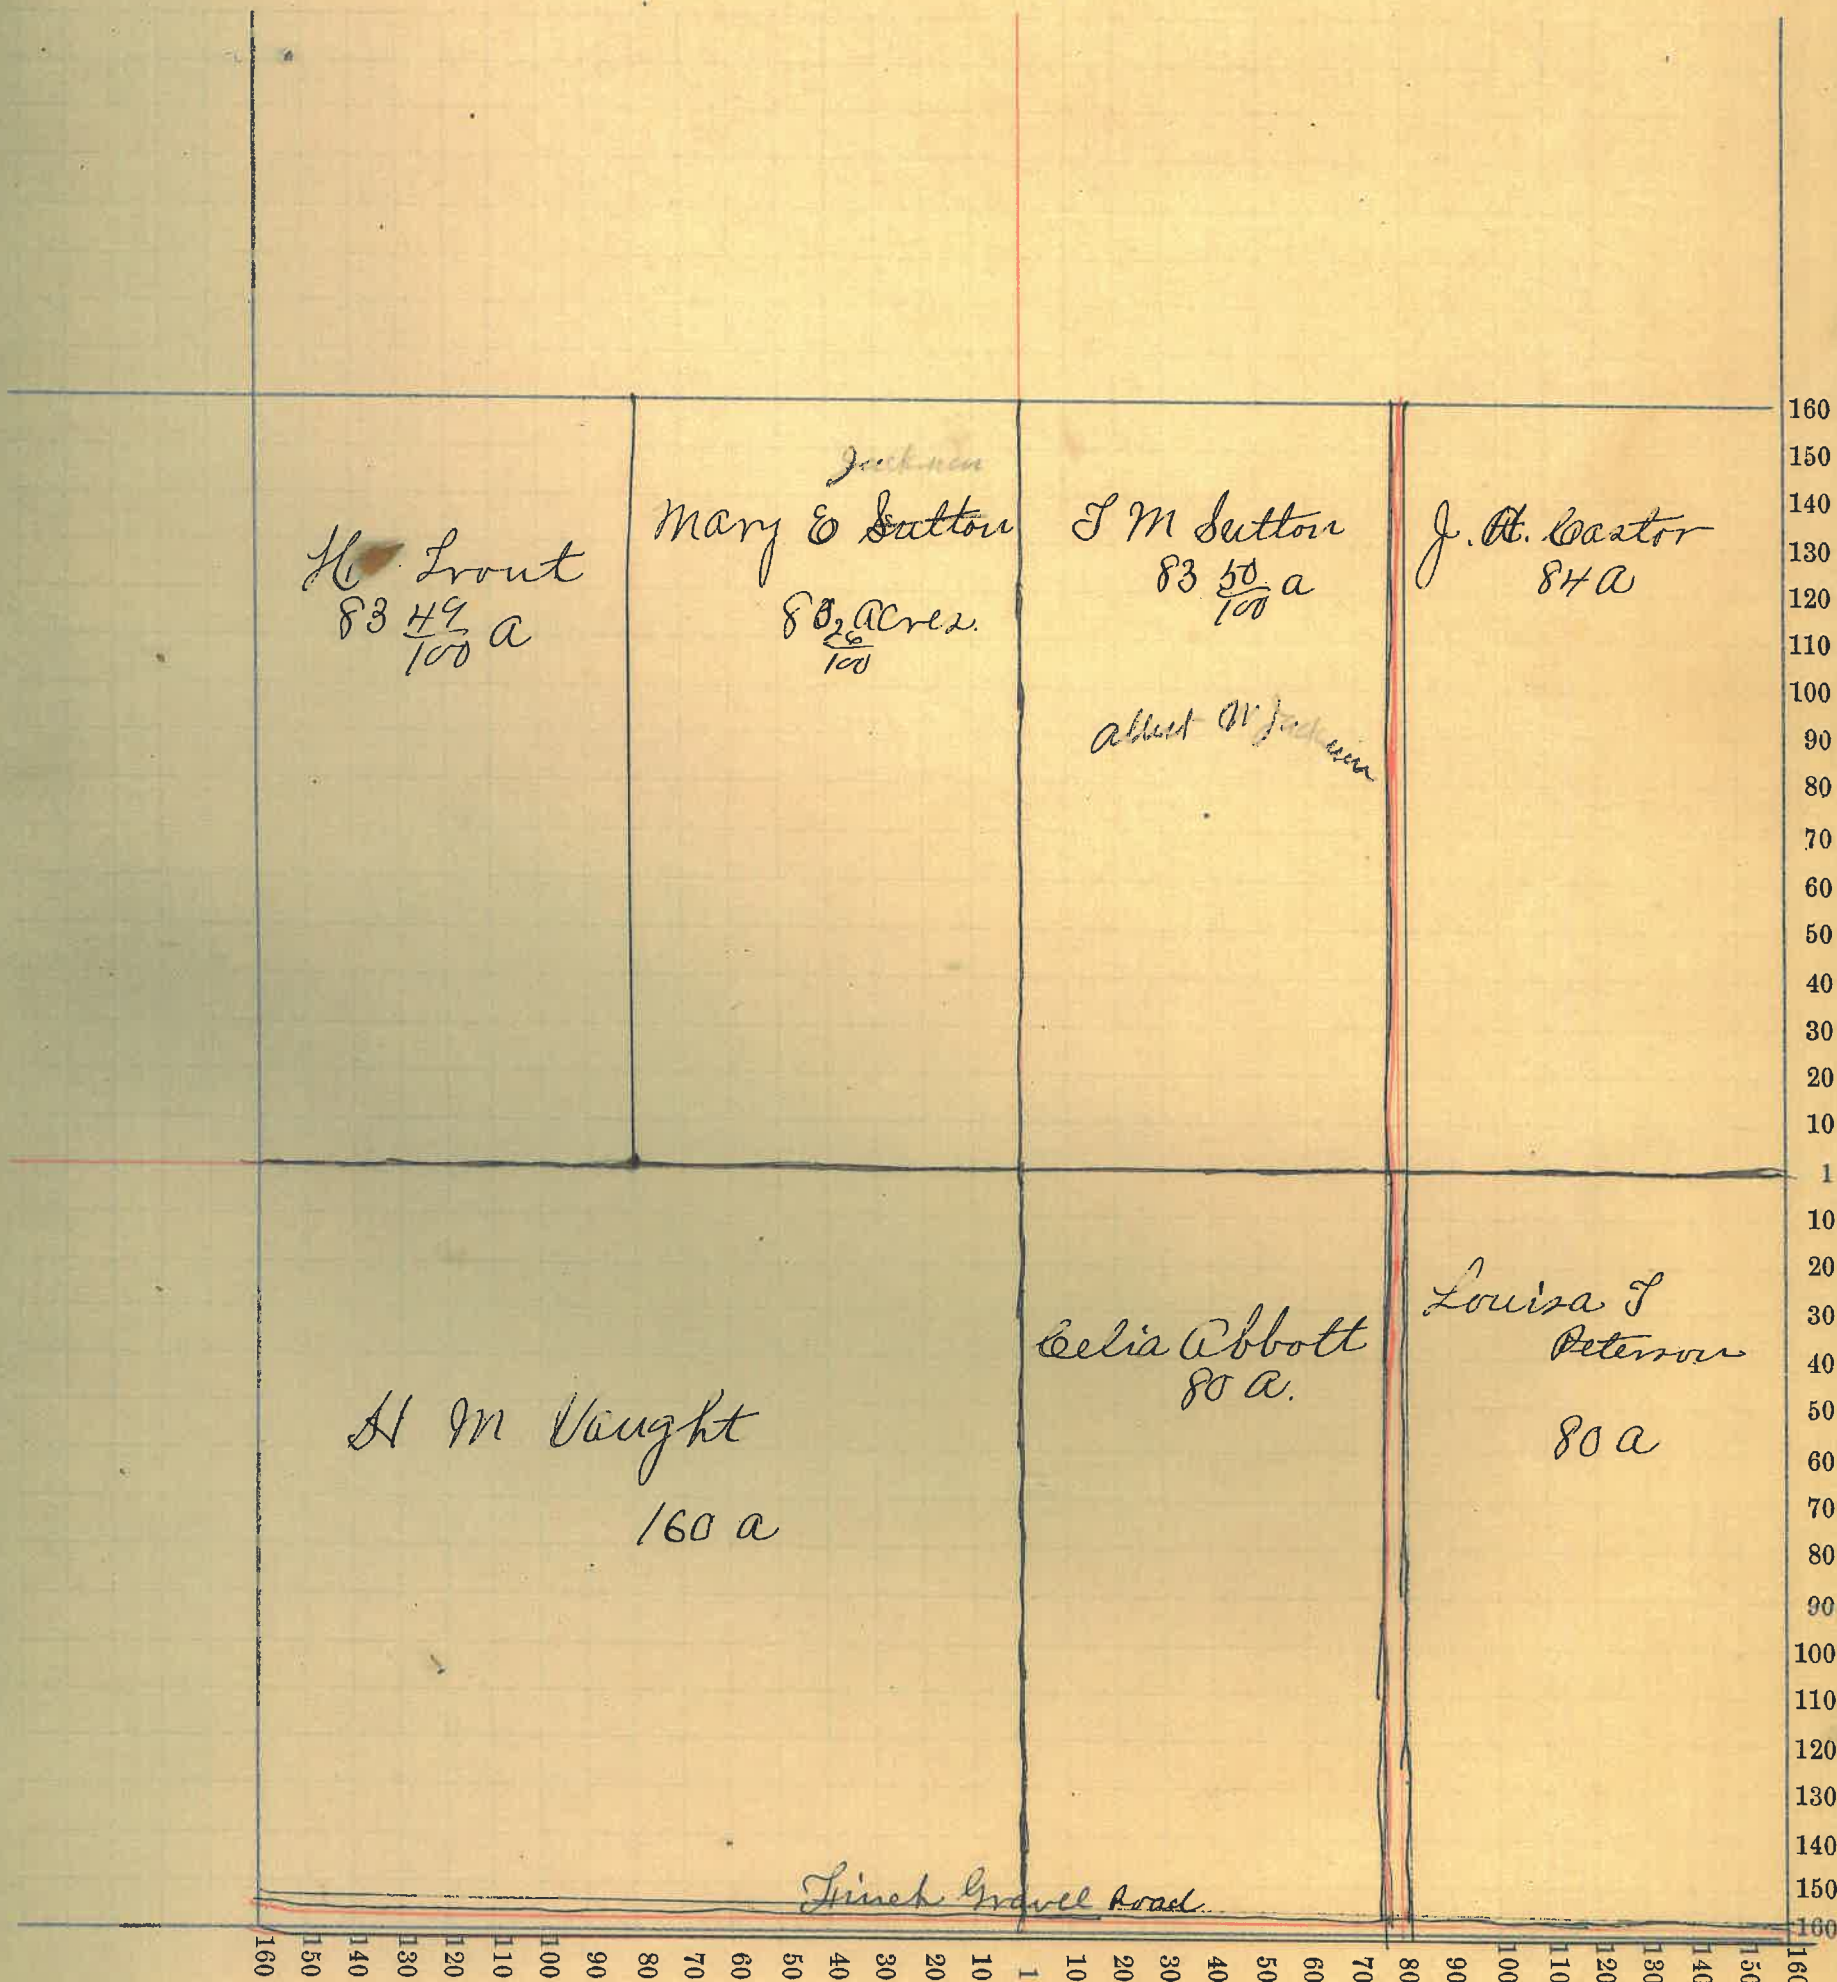 Jackson
Mary E Sutton
80 26/100 Acres.
H Trout
83 49/100 a
T M Sutton
83 50/100 a
Albert W Jackson
J. H. Castor
84 a
H M Vaught
160 a
Celia Abbott
80 a.
Louisa T
Peterson
80 a
Finch Gravel Road
160
150
140
130
120
110
100
90
80
70
60
50
40
30
20
10
1
10
20
30
40
50
60
70
80
90
100
110
120
130
140
150
160
160 150 140 130 120 110 100 90 80 70 60 50 40 30 20 10 1 10 20 30 40 50 60 70 80 90 100 110 120 130 140 150 160